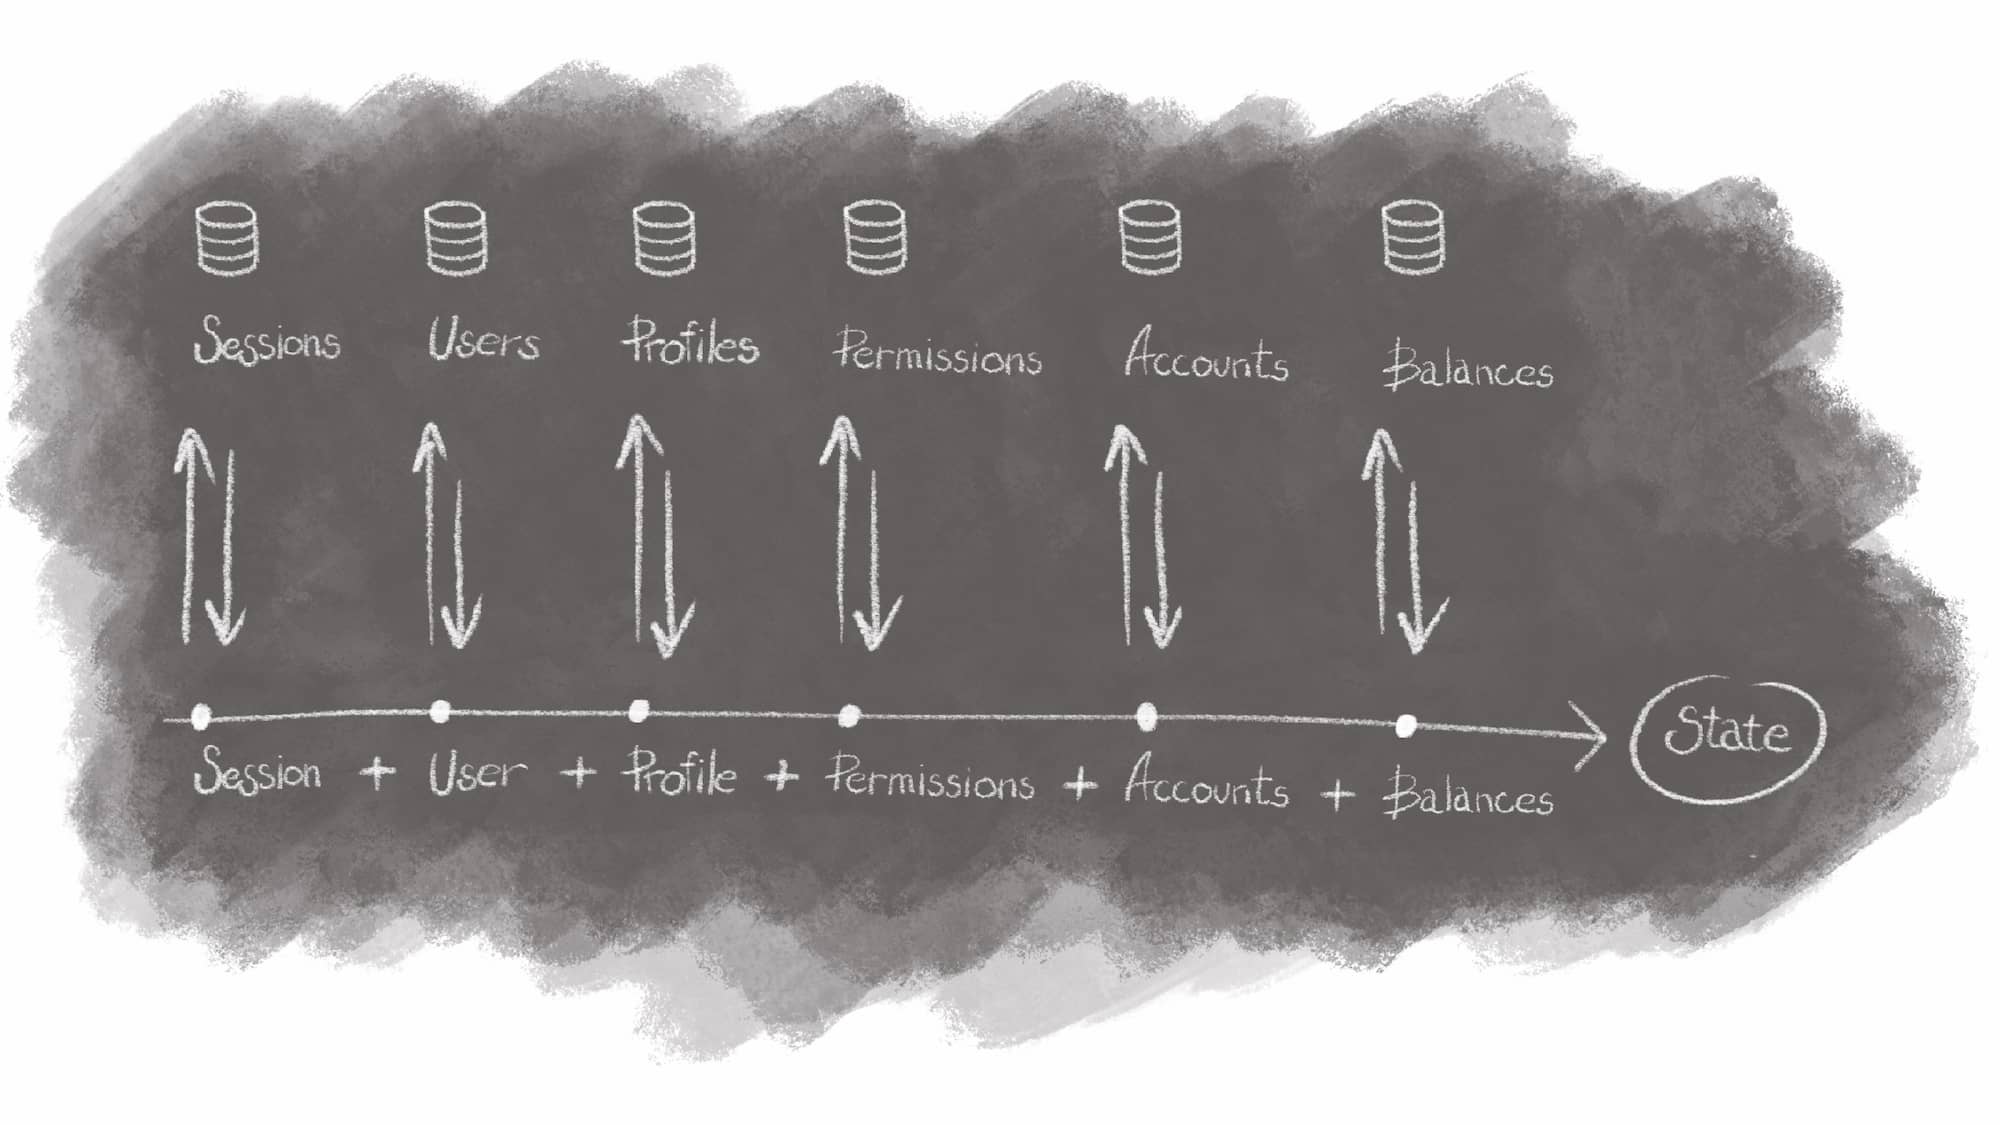 Sessions Users Profiles Permissions Accounts Balances
Session + User + Profile + Permissions + Accounts + Balances State